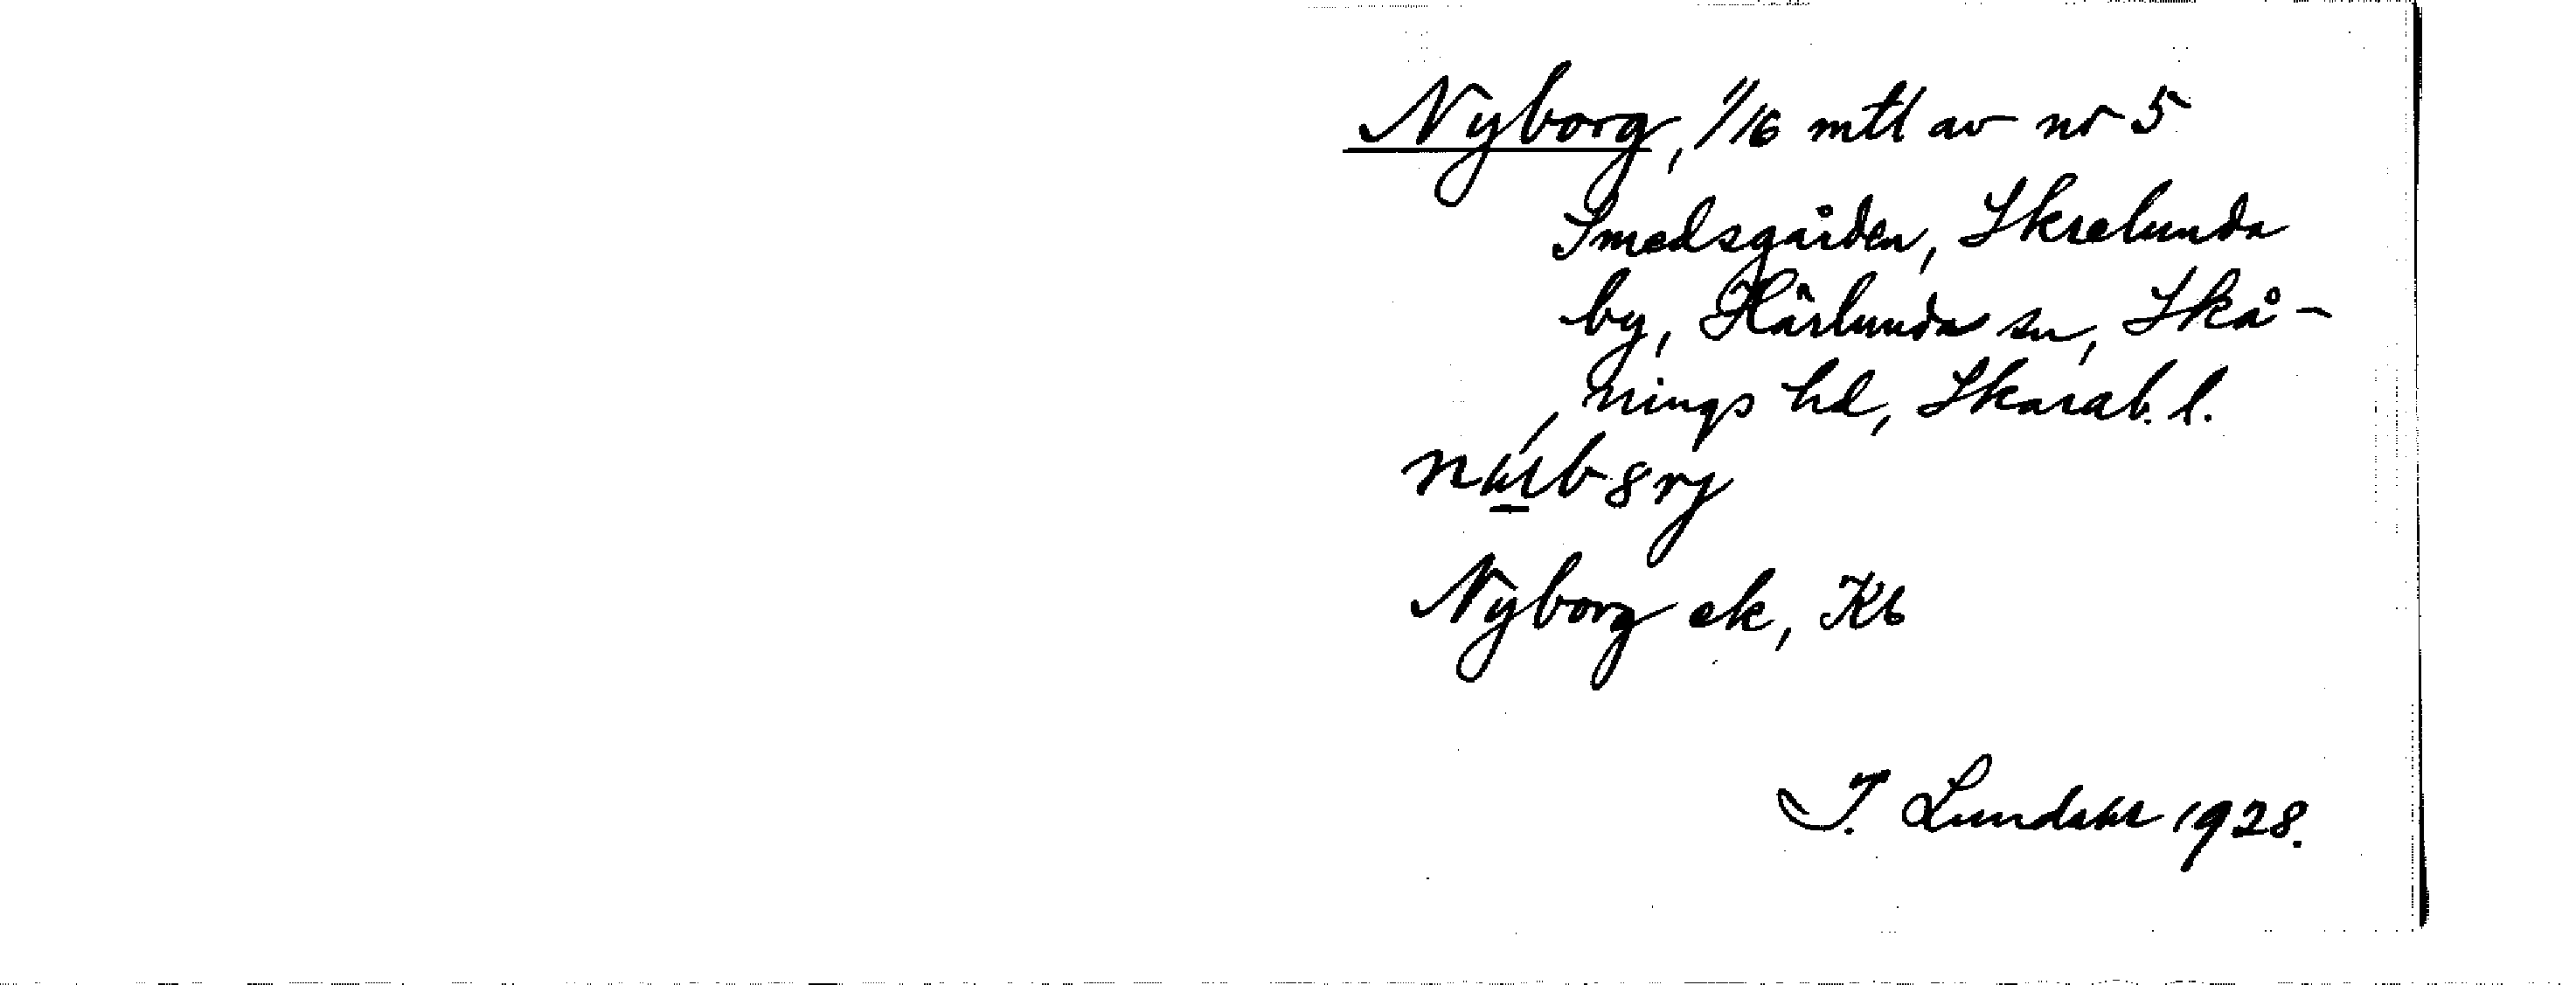 Nyborg, 1/16 mtl av nr 5
Smedsgården, Skrelunda
by, Härlunda sn, Skå-
nings hd, Skarab. l.
Nyborg ek, Kb
I. Lundahl 1928.